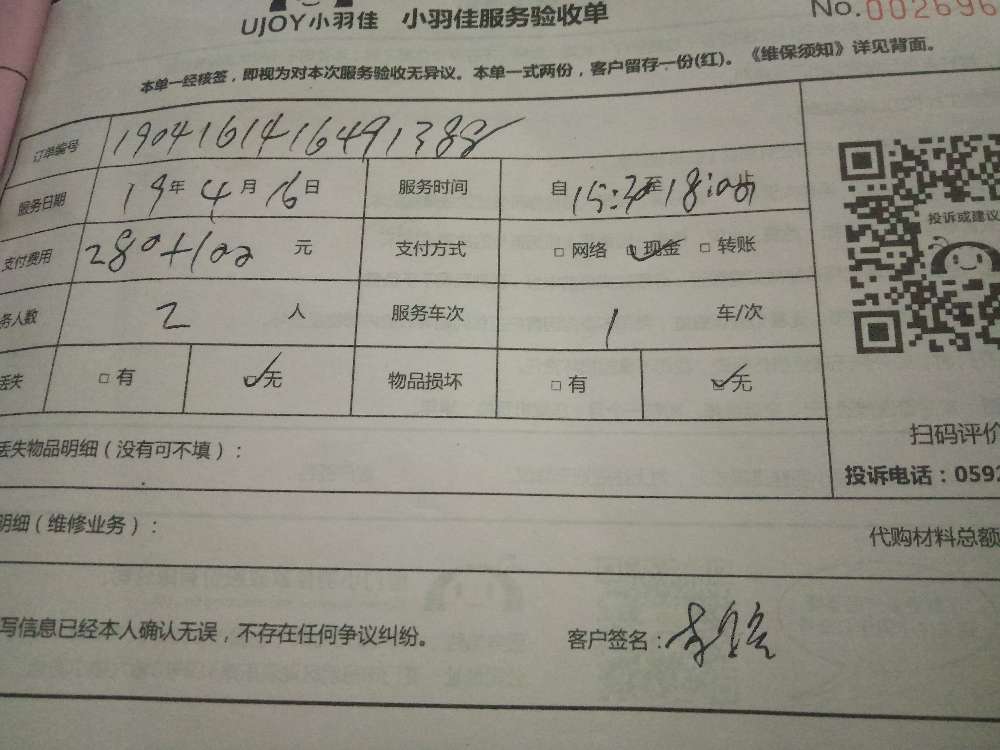 UJOY小羽佳 小羽佳服务验收单
No.002696
本单一经核签，即视为对本次服务验收无异议。本单一式两份，客户留存一份(红)。《维保须知》详见背面。
订单编号 1904161416491388
服务日期 19年4月16日 服务时间 自15:30至18:00止
支付费用 280+100元 支付方式 □网络 ☑现金 □转账
务人数 2人 服务车次 1车/次
丢失 □有 ☑无 物品损坏 □有 ☑无
投诉或建议
扫码评价
投诉电话：0592
丢失物品明细（没有可不填）：
明细（维修业务）： 代购材料总额
写信息已经本人确认无误，不存在任何争议纠纷。 客户签名：